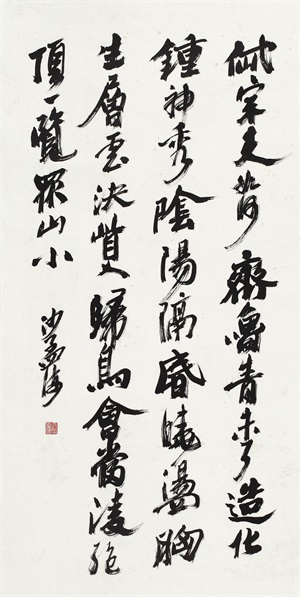 岱宗夫如何齊魯青未了造化
鍾神秀陰陽隔昏曉盪胸
生層雲決眥入歸鳥會當凌絕
頂一覽眾山小
沙孟海